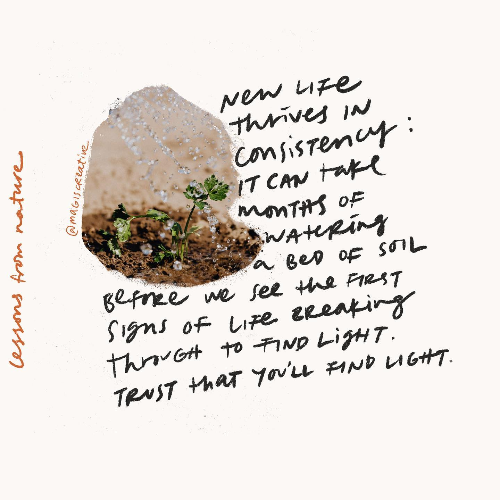 lessons from nature
@MAGISCREATIVE
NEW LIFE
thrives IN
CONSISTENCY:
IT CAN take
MONTHS OF
WATERING
a BED OF SOIL
BEFORE we see the FIRST
SIGNS OF LIFE BREAKING
through to FIND LIGHT.
TRUST that YOU'LL FIND LIGHT.